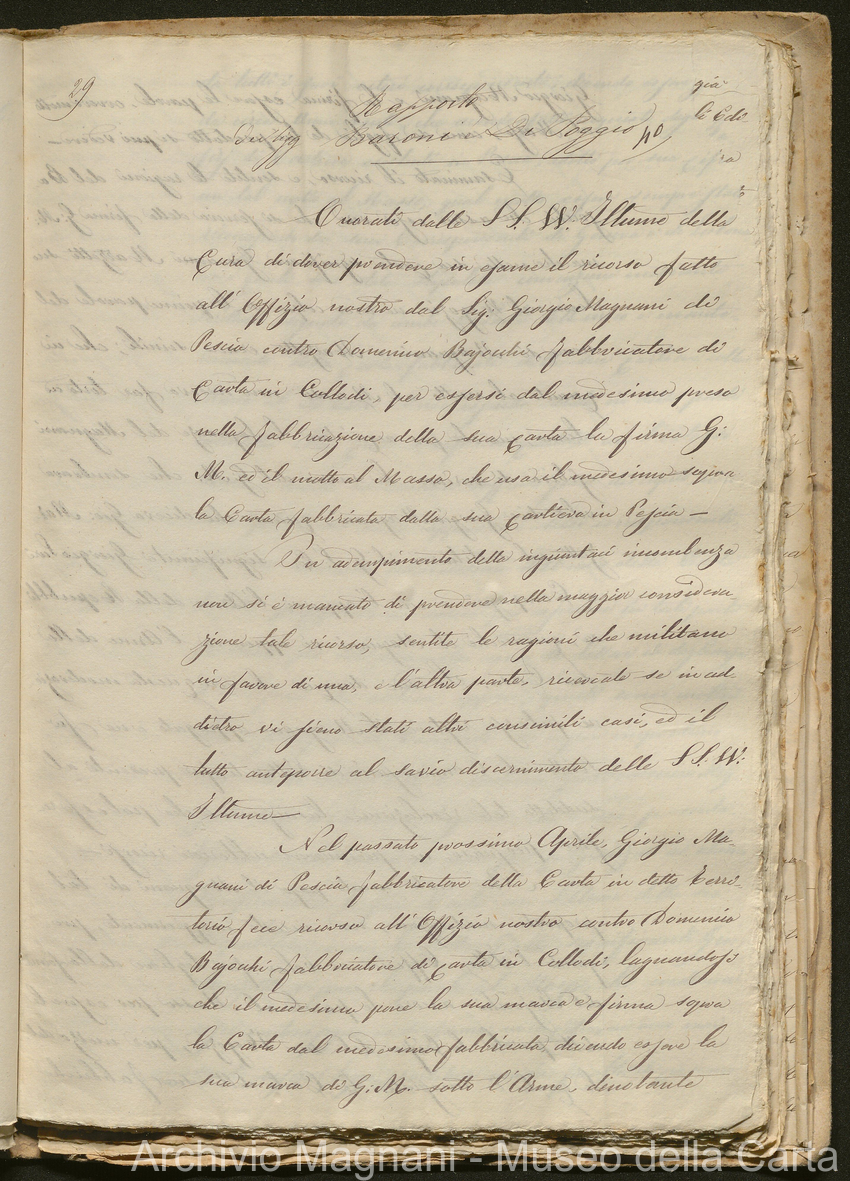 29
già
le Edi-
ra
Rapporto
Baroni Di Poggio
Onorati dalle S S. W. Illume della
Cura di dover prendere in esame il ricorso fatto
all' Offizio nostro dal Sig. Giorgio Magnani di
Pescia contro Domenico Bajocchi fabbricatore di
Carta in Collodi, per essersi dal medesimo preso
nella fabbricazione della sua Carta la firma G:
M. ed il motto al Masso, che usa il medesimo sopra
la Carta fabbricata dalla sua Cartiera in Pescia —
In adempimento della ingiuntaci incumbenza
non si è mancato di prendere nella maggior considera-
zione tale ricorso, sentite le ragioni che militano
in favore di una, e l'altra parte, ricercato se in ad-
dietro vi sieno stati altri consimili casi, ed il
tutto anteporre al savio discernimento delle S S. W.
Illume —
Nel passato prossimo Aprile, Giorgio Ma-
gnani di Pescia fabbricatore della Carta in detto Terri-
torio fece ricorso all' Offizio nostro contro Domenico
Bajocchi fabbricatore di Carta in Collodi, lagnandosi
che il medesimo pone la sua marca e firma sopra
la Carta dal medesimo fabbricata, dicendo essere la
sua marca di G: M. sotto l'Arme, dinotante
Archivio Magnani - Museo della Carta